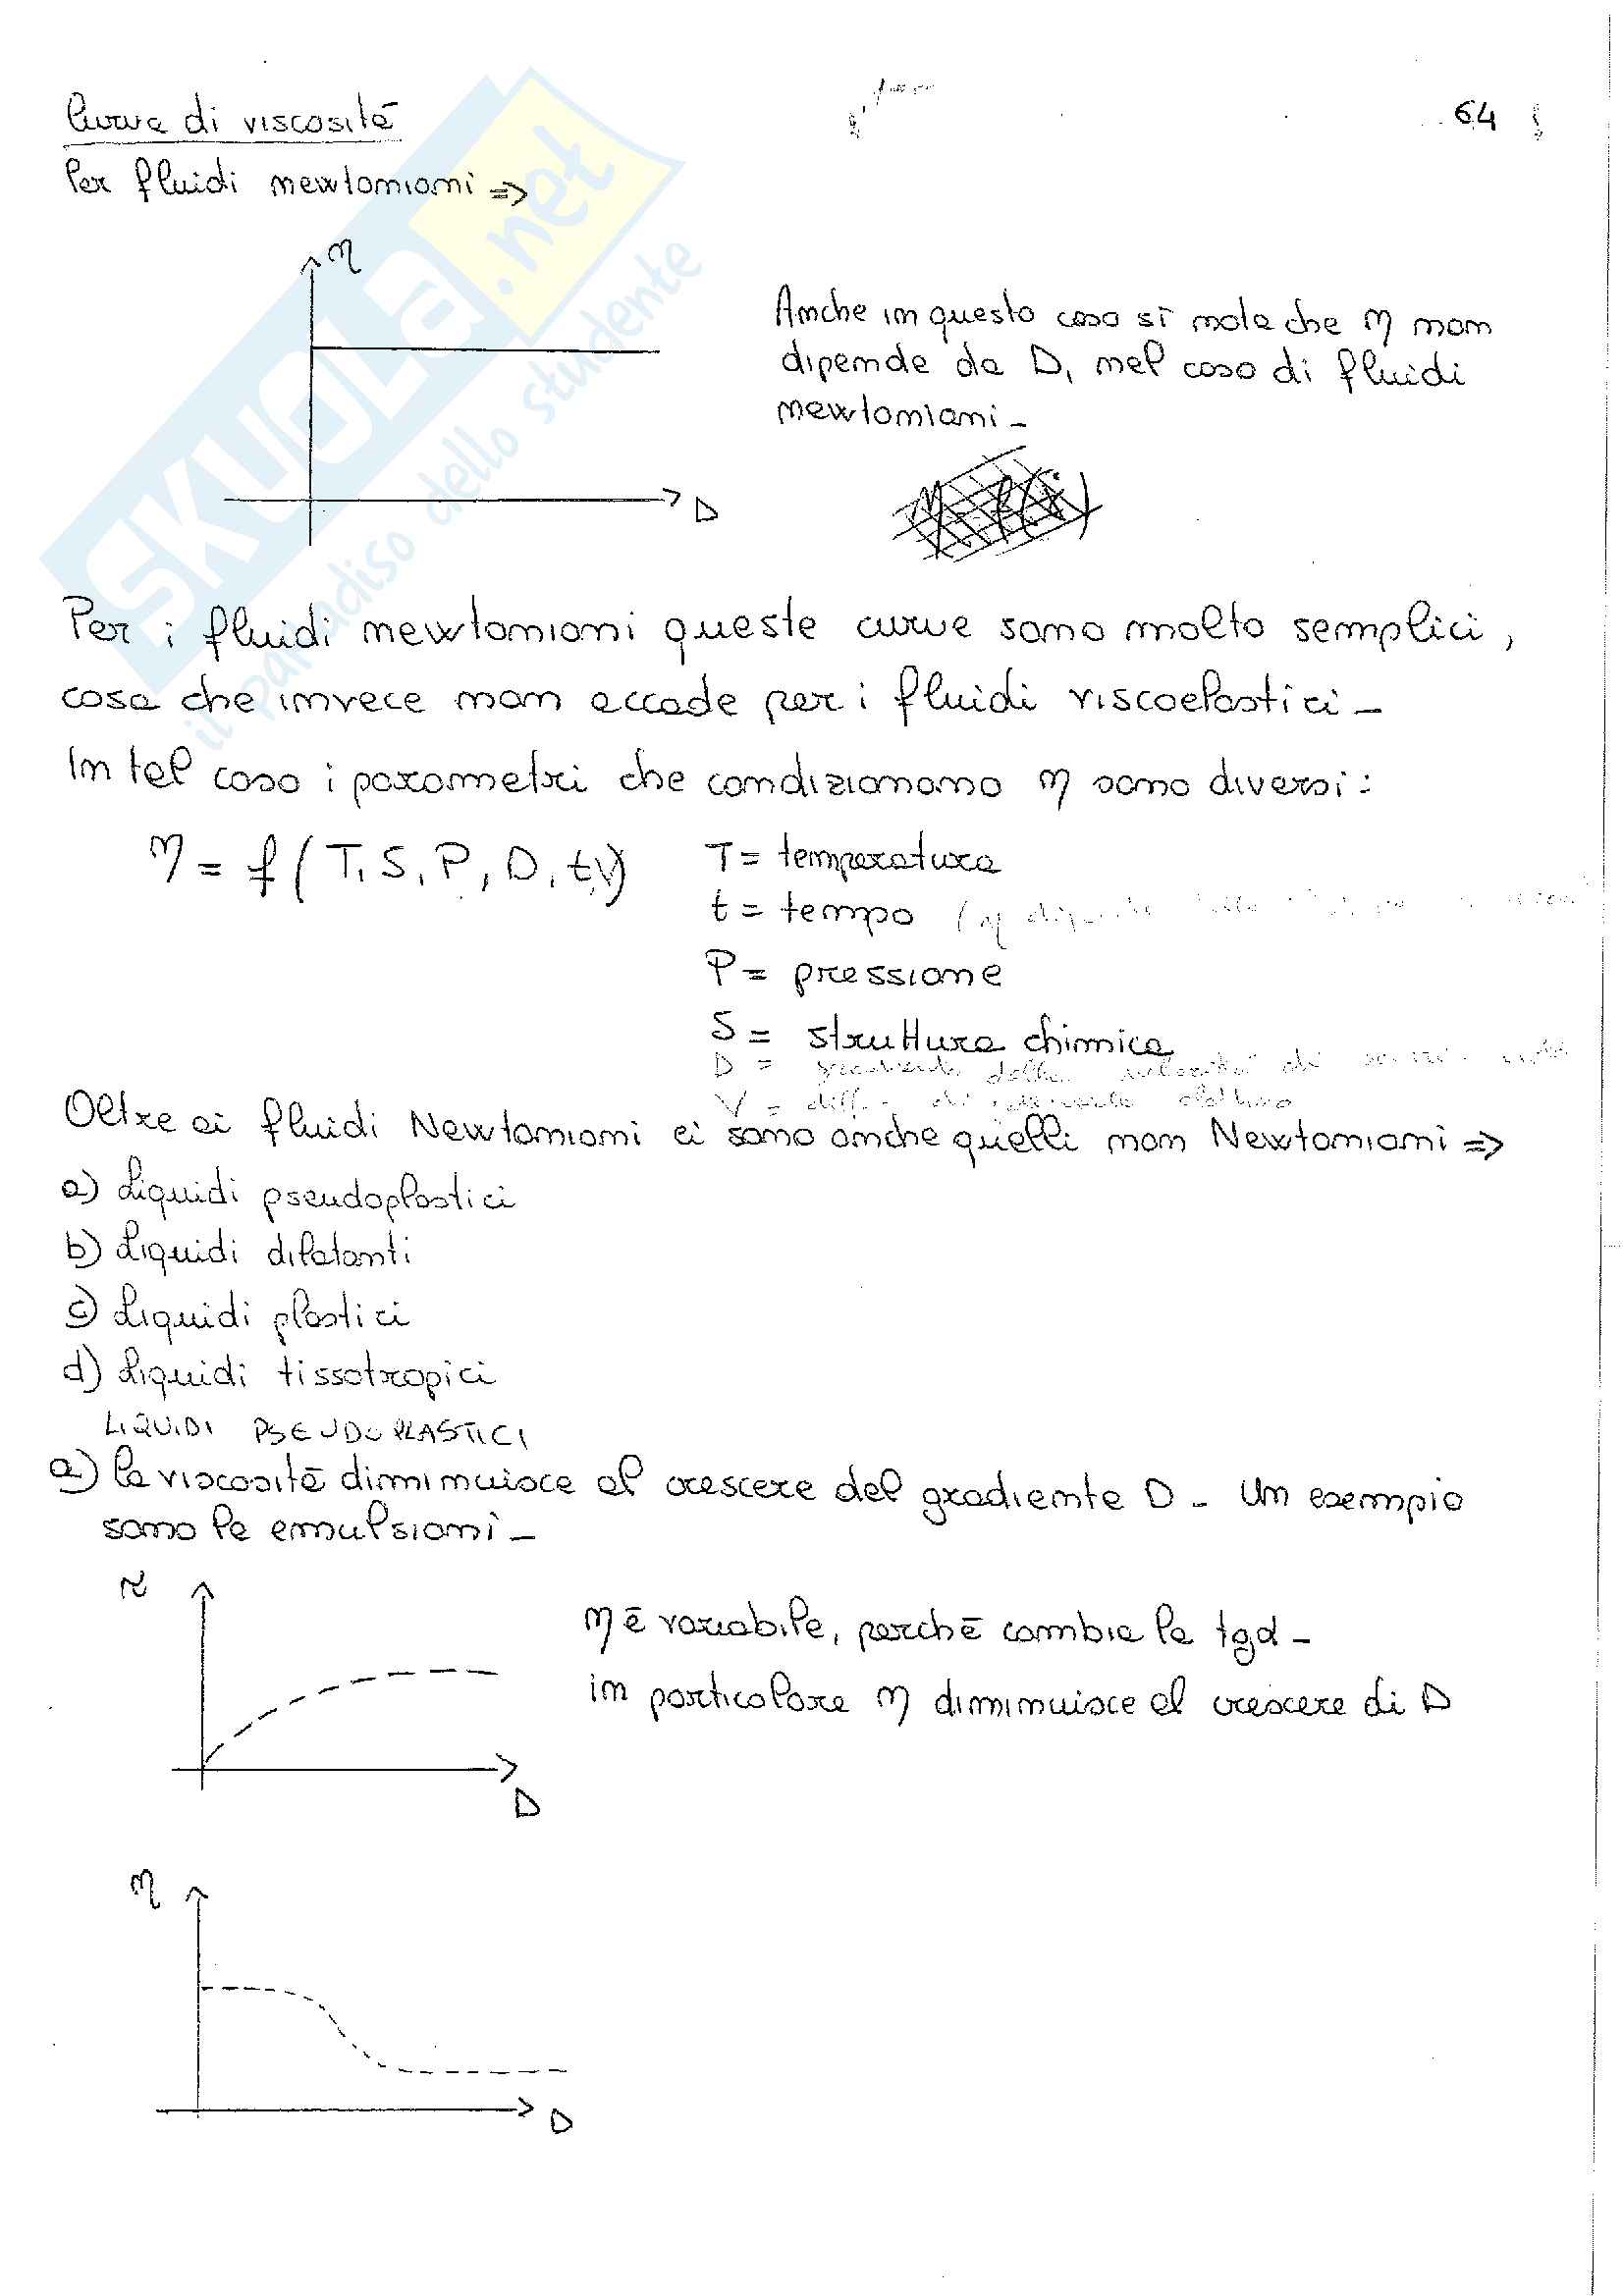 Curva di viscosità
64
Per fluidi newtoniani =>
η
Anche in questo caso si nota che η non
dipende da D, nel caso di fluidi
newtoniani -
D
Per i fluidi newtoniani queste curve sono molto semplici,
cosa che invece non accade per i fluidi viscoelastici -
In tal caso i parametri che condizionano η sono diversi:
η = f (T, S, P, D, t, V)
T = temperatura
t = tempo (η dipende
P = pressione
S = struttura chimica
D = gradiente della velocità di
V =
Oltre ai fluidi Newtoniani ci sono anche quelli non Newtoniani =>
a) Liquidi pseudoplastici
b) Liquidi dilatanti
c) Liquidi plastici
d) Liquidi tissotropici
LIQUIDI PSEUDOPLASTICI
a) la viscosità diminuisce al crescere del gradiente D - Un esempio
sono le emulsioni -
τ
η è variabile, perchè cambia la tgα -
in particolare η diminuisce al crescere di D
D
η
D
SKUOLA.net
il paradiso dello studente